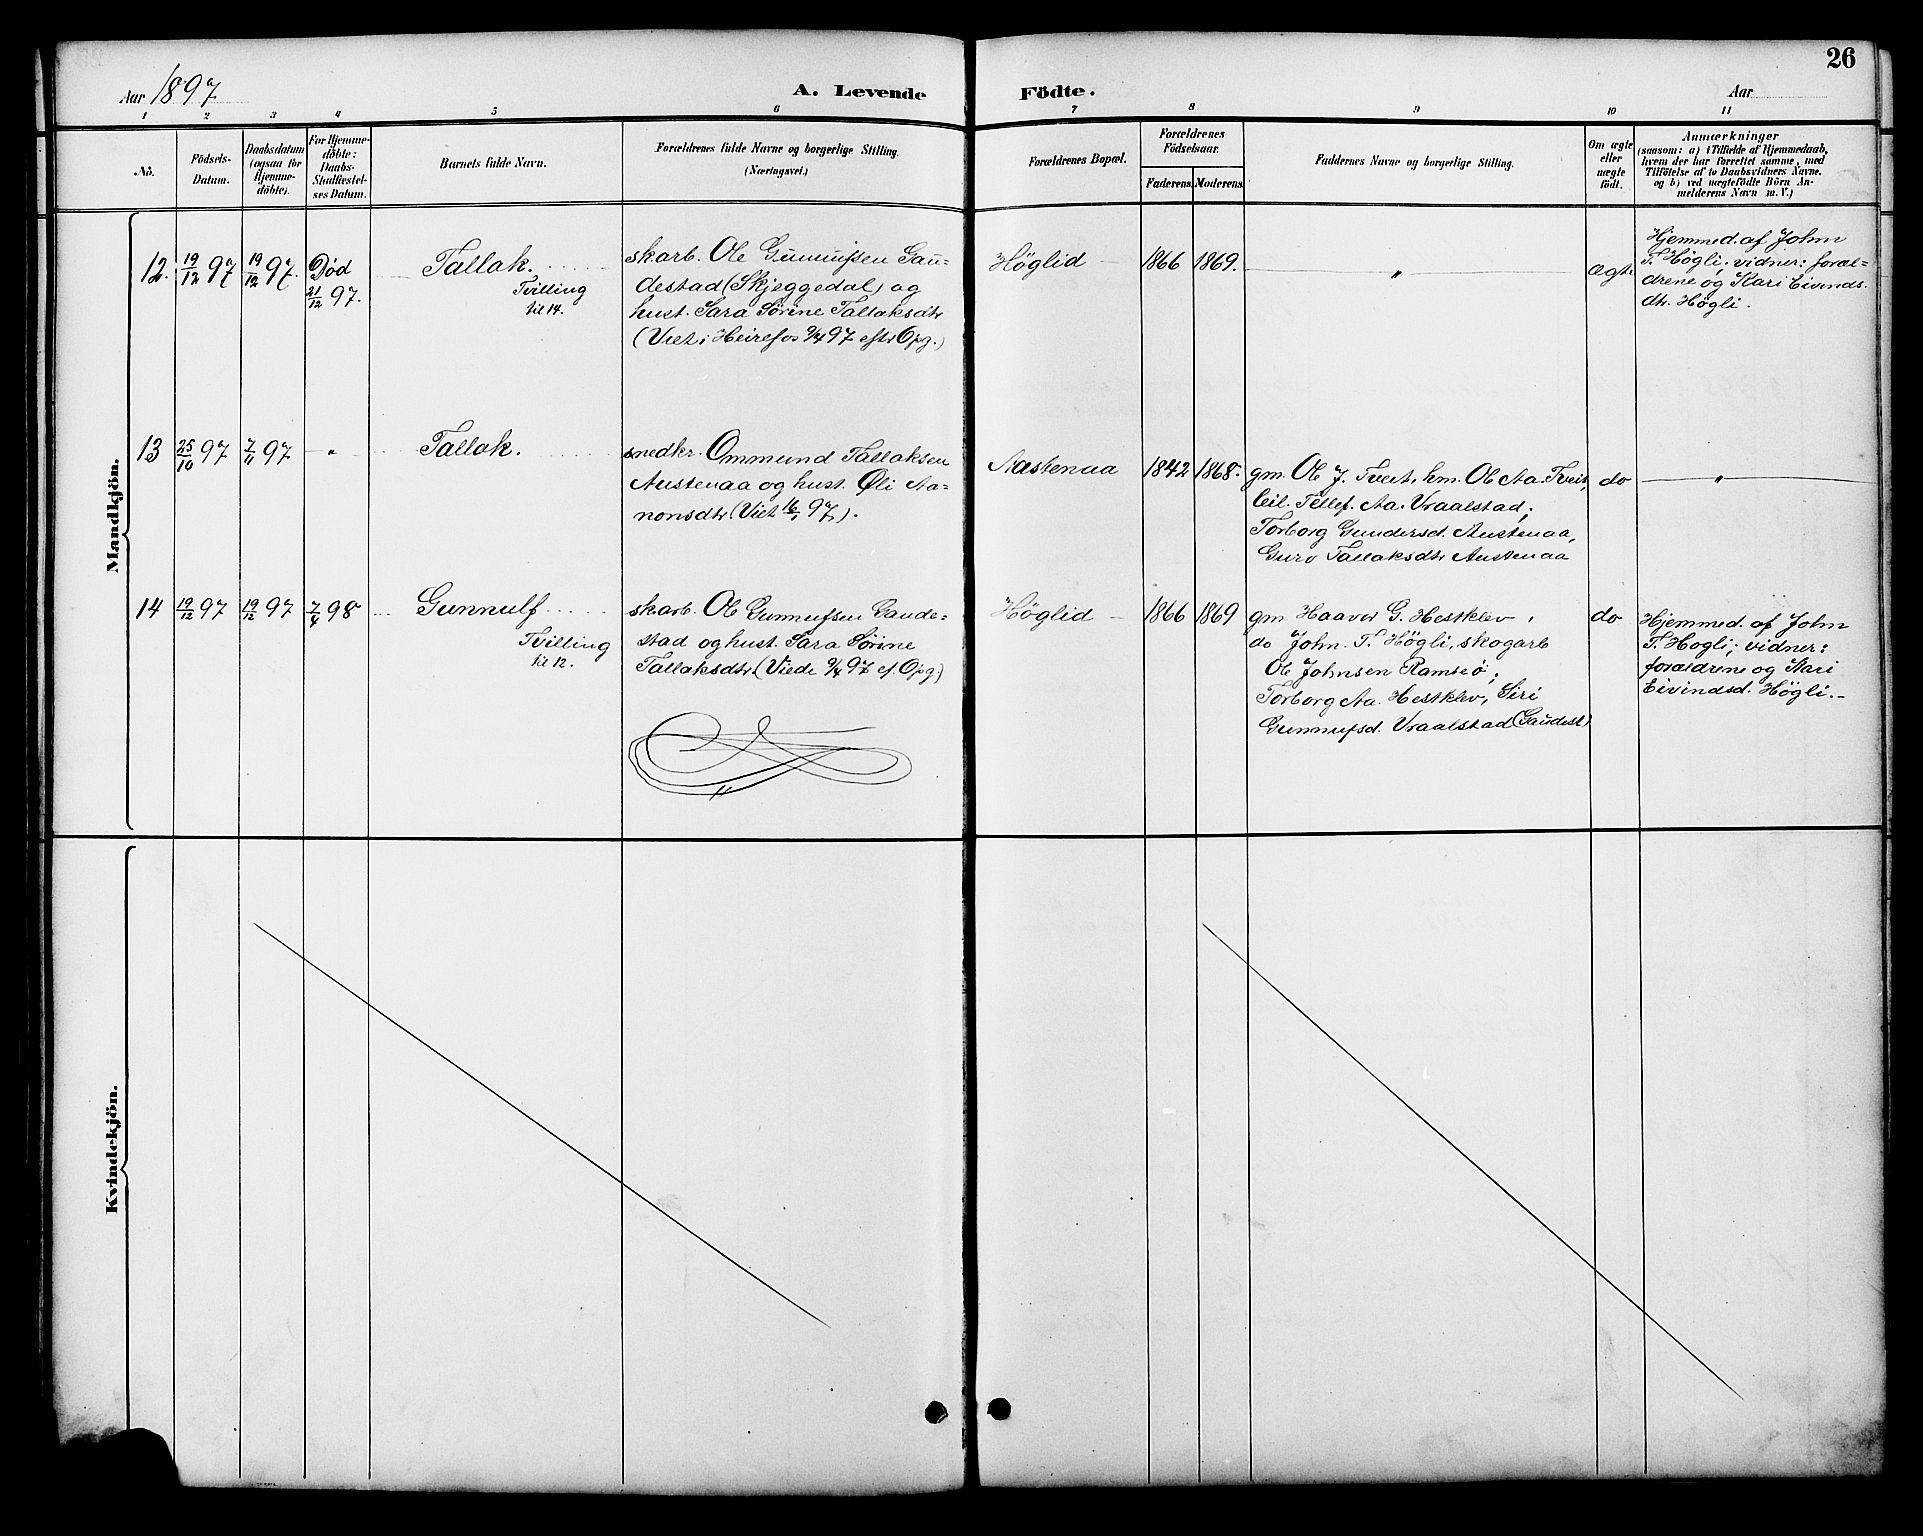 26
Aar 1897 A. Levende Födte. Aar
1 2 3 4 5 6 7 8 9 10 11
No.
Födsels-
Datum.
Daabsdatum
(ogsaa for
Hjemme-
döbte).
For Hjemme-
döbte:
Daabs-
Stadfæstel-
ses Datum.
Barnets fulde Navn.
Forældrenes fulde Navne og borgerlige Stilling.
(Næringsvei.)
Forældrenes Bopæl.
Forældrenes
Födselsaar.
Faderens. Moderens.
Faddernes Navne og borgerlige Stilling.
Om ægte
eller
uægte
födt.
Anmærkninger
(saasom: a) i Tilfælde af Hjemmedaab,
hvem der har forrettet samme, med
Tilföielse af to Daabsvidners Navne,
og b) ved uægtefödte Börn An-
melderens Navn m. V.)
Mandkjön.
12. 19/12 97 19/12 97. Död
21/12 97.
Tallak.
Tvilling
til 14.
skarb. Ole Gunnufsen Gau-
destad (Skjeggedal) og
hust. Sara Sørine Tallaksdtr
(Viet i Heirefos 9/4 97 eftr Opg.)
Höglid 1866 1869. " ægte
Hjemmed. af John
T. Högli; vidner: foræl-
drene og Kari Eivinds-
dtr. Högli.
13 25/10 97 7/11 97 "
Tallak.
snedkr. Ommund Tallaksen
Austenaa og hust. Øli Aa-
nonsdtr (Viet 16/1 97).
Austenaa 1842 1868.
gm. Ole J. Tveit, km. Ole Aa. Tveit,
Eil. Tellef. Aa. Vraalstad;
Torborg Gundersd. Austenaa,
Guro Tallaksdtr Austenaa
do "
14 19/12 97 19/12 97 7/4 98
Gunnulf
Tvilling
til 12.
skarb. Ole Gunnufsen Gaude-
stad og hust. Sara Sørine
Tallaksdtr. (Viede 9/4 97 ef. Opg)
Höglid 1866 1869
gm. Haavor G. Hestklev,
do John. T. Högli, skogarb
Ole Johnsen Ramseö;
Torborg Aa. Hestklev, Siri
Gunnufsd. Vraalstad (Gaudest)
do
Hjemmed. af John
T. Hogli; vidner:
forældrene og Kari
Eivindsd. Högli.-
Kvindekjön.